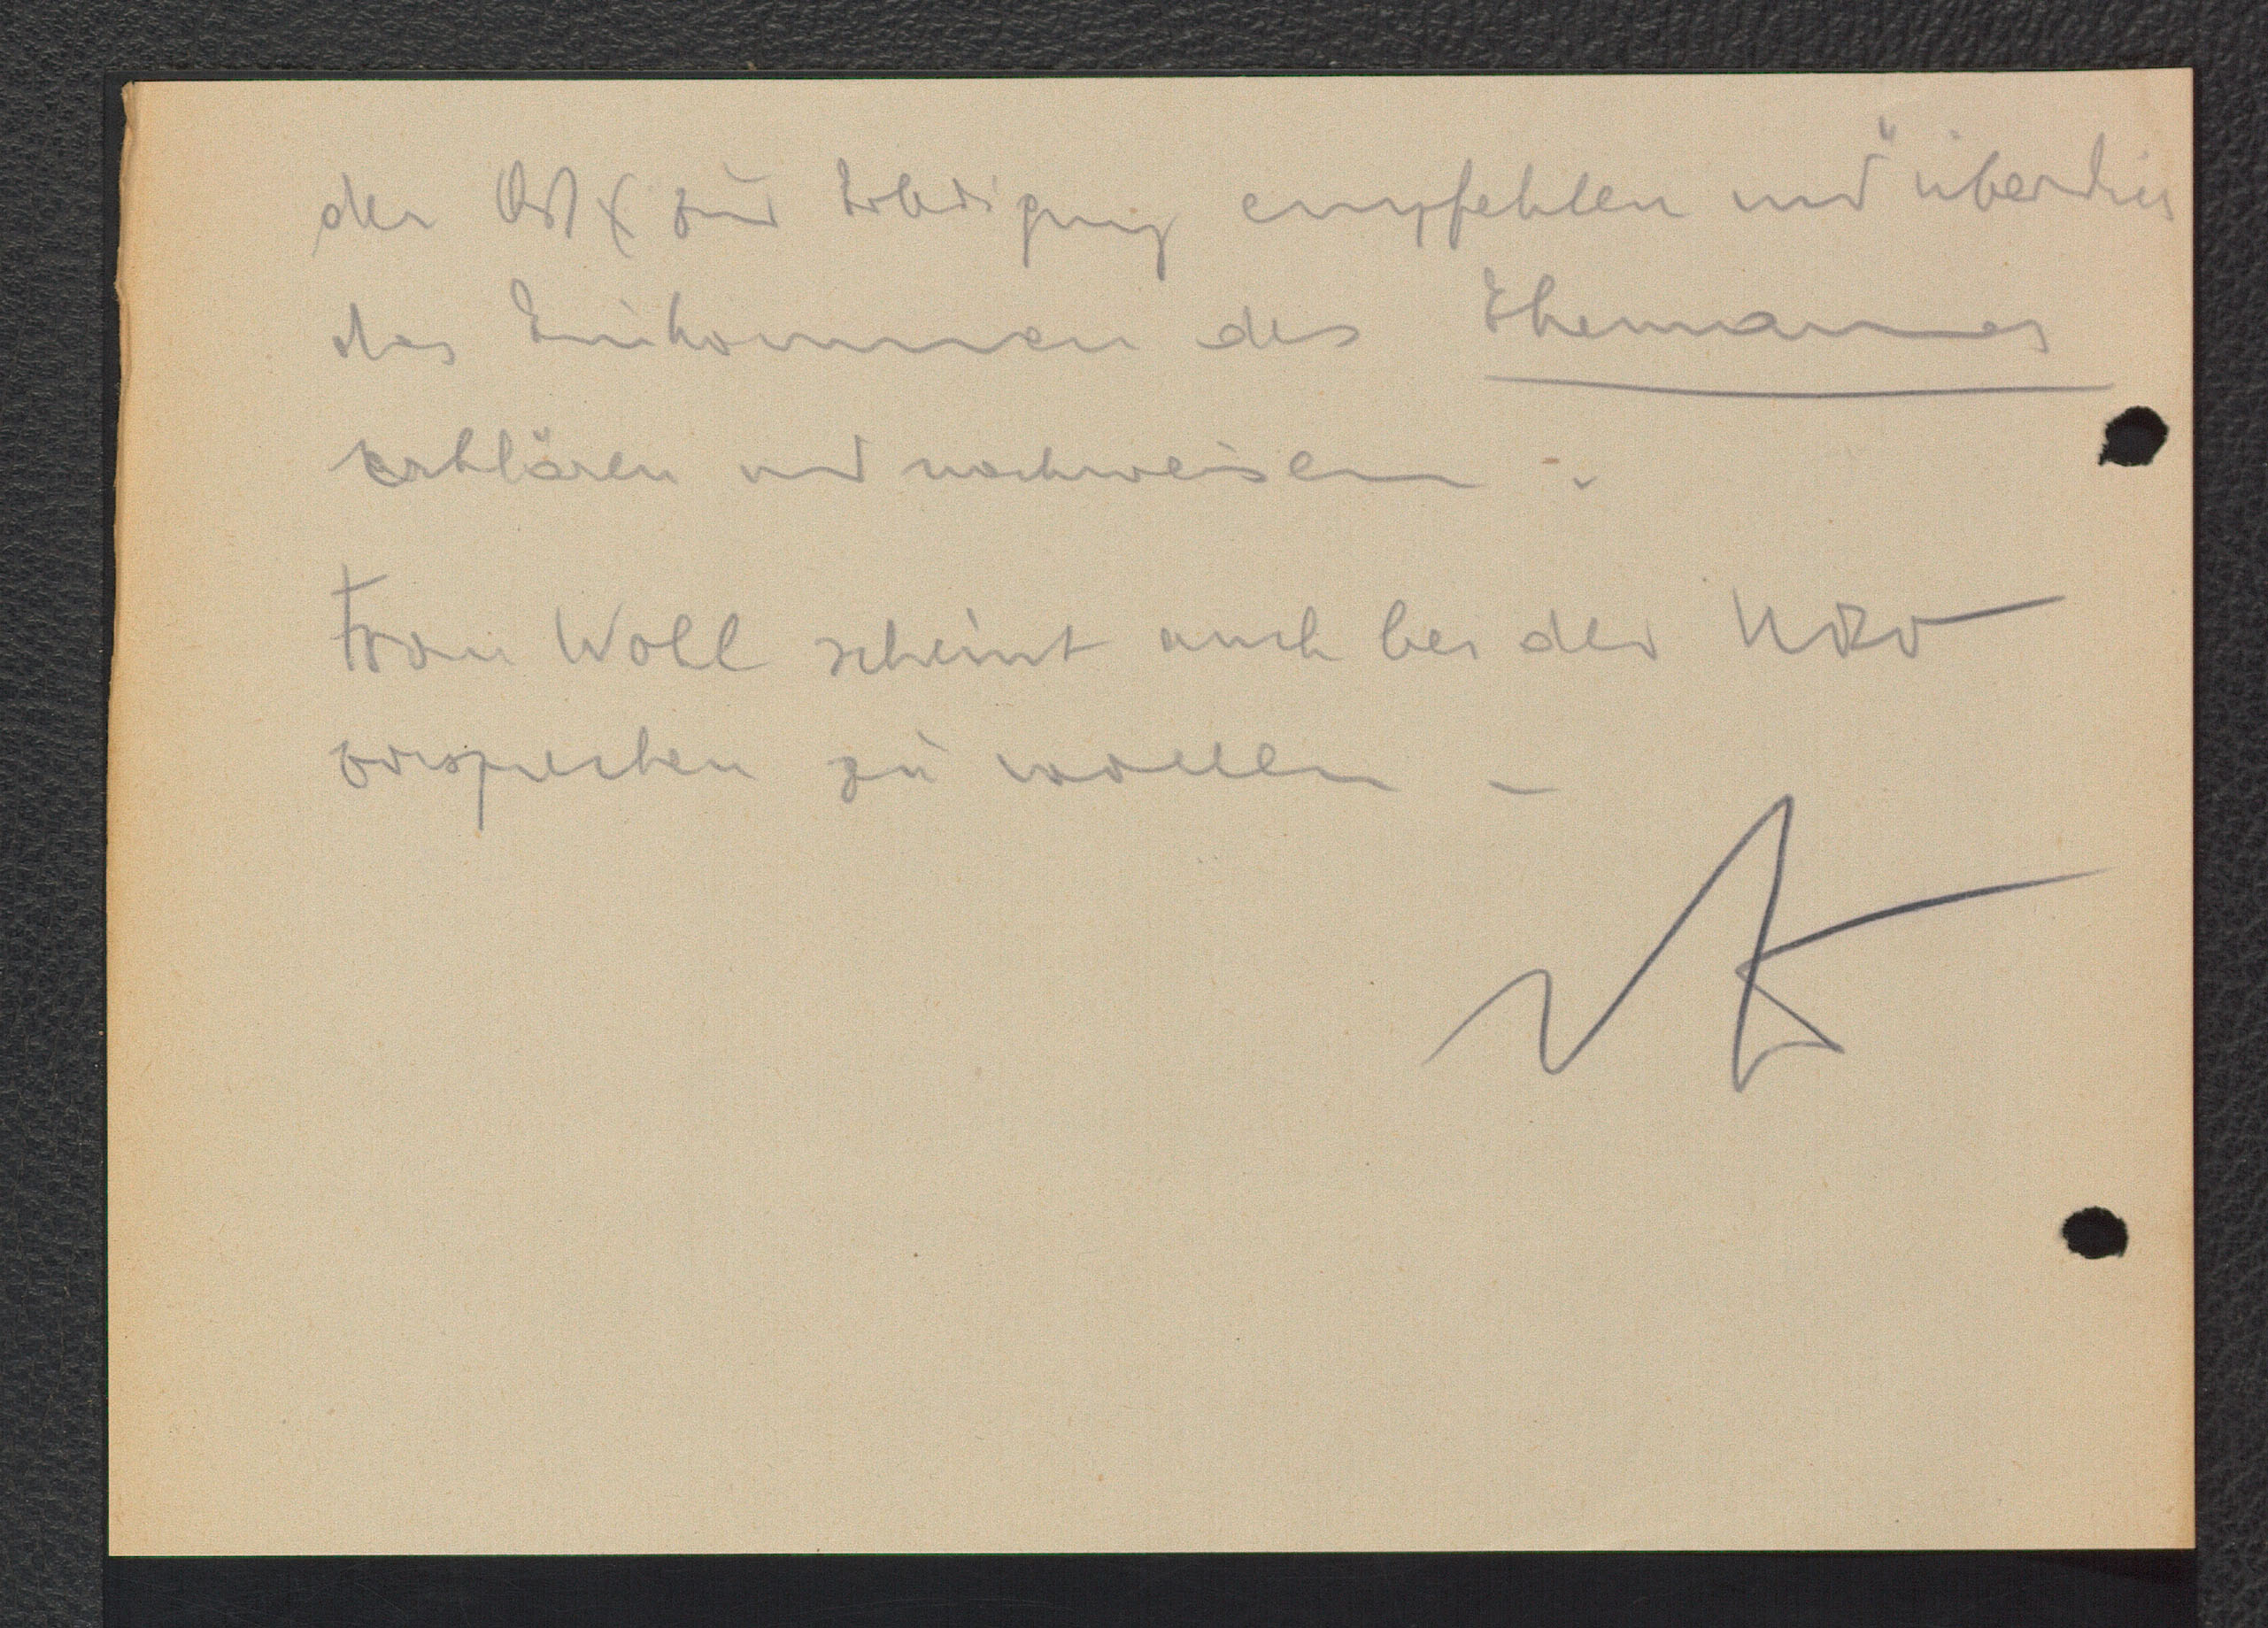 der zur Erledigung empfehlen und überdies
das Einkommen des Ehemannes
erklären und nachweisen.
Frau Woll scheint auch bei der
vorsprechen zu wollen –